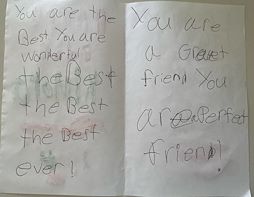 You are the
Best You are
wonderful
the Best
the Best
the Best
ever!
You are
a Great
friend You
are a Perfect
friend!